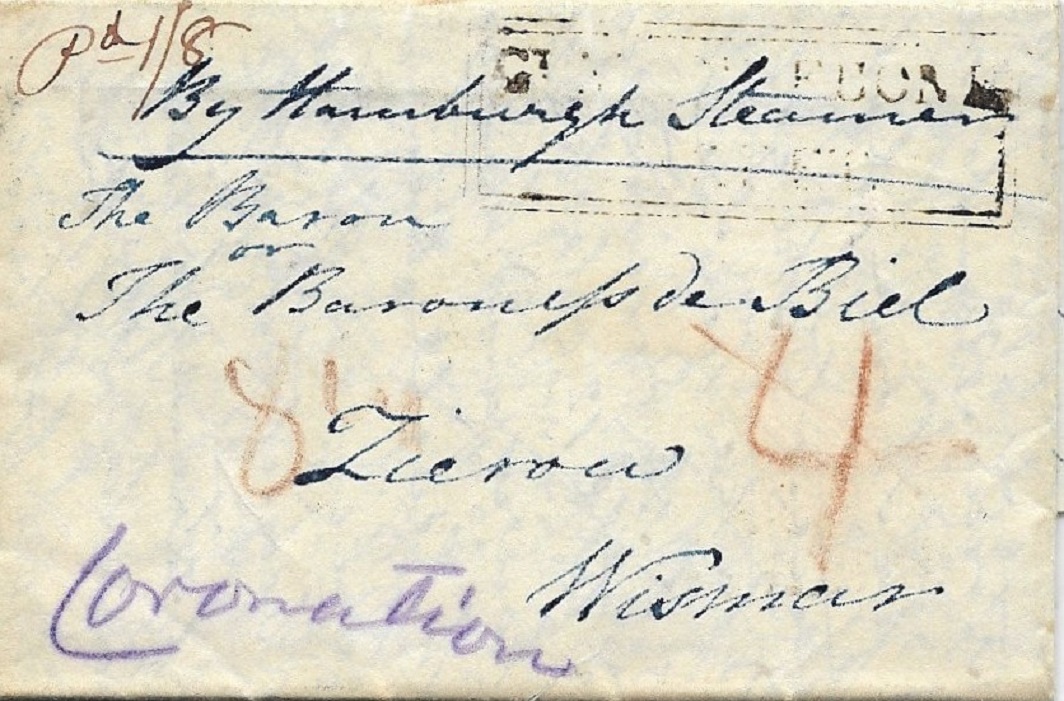 Pd 1/8
By Hamburgh Steamer
The Baron
or
The Baroness de Biel
4
8
Zierow
Wismar
Coronation